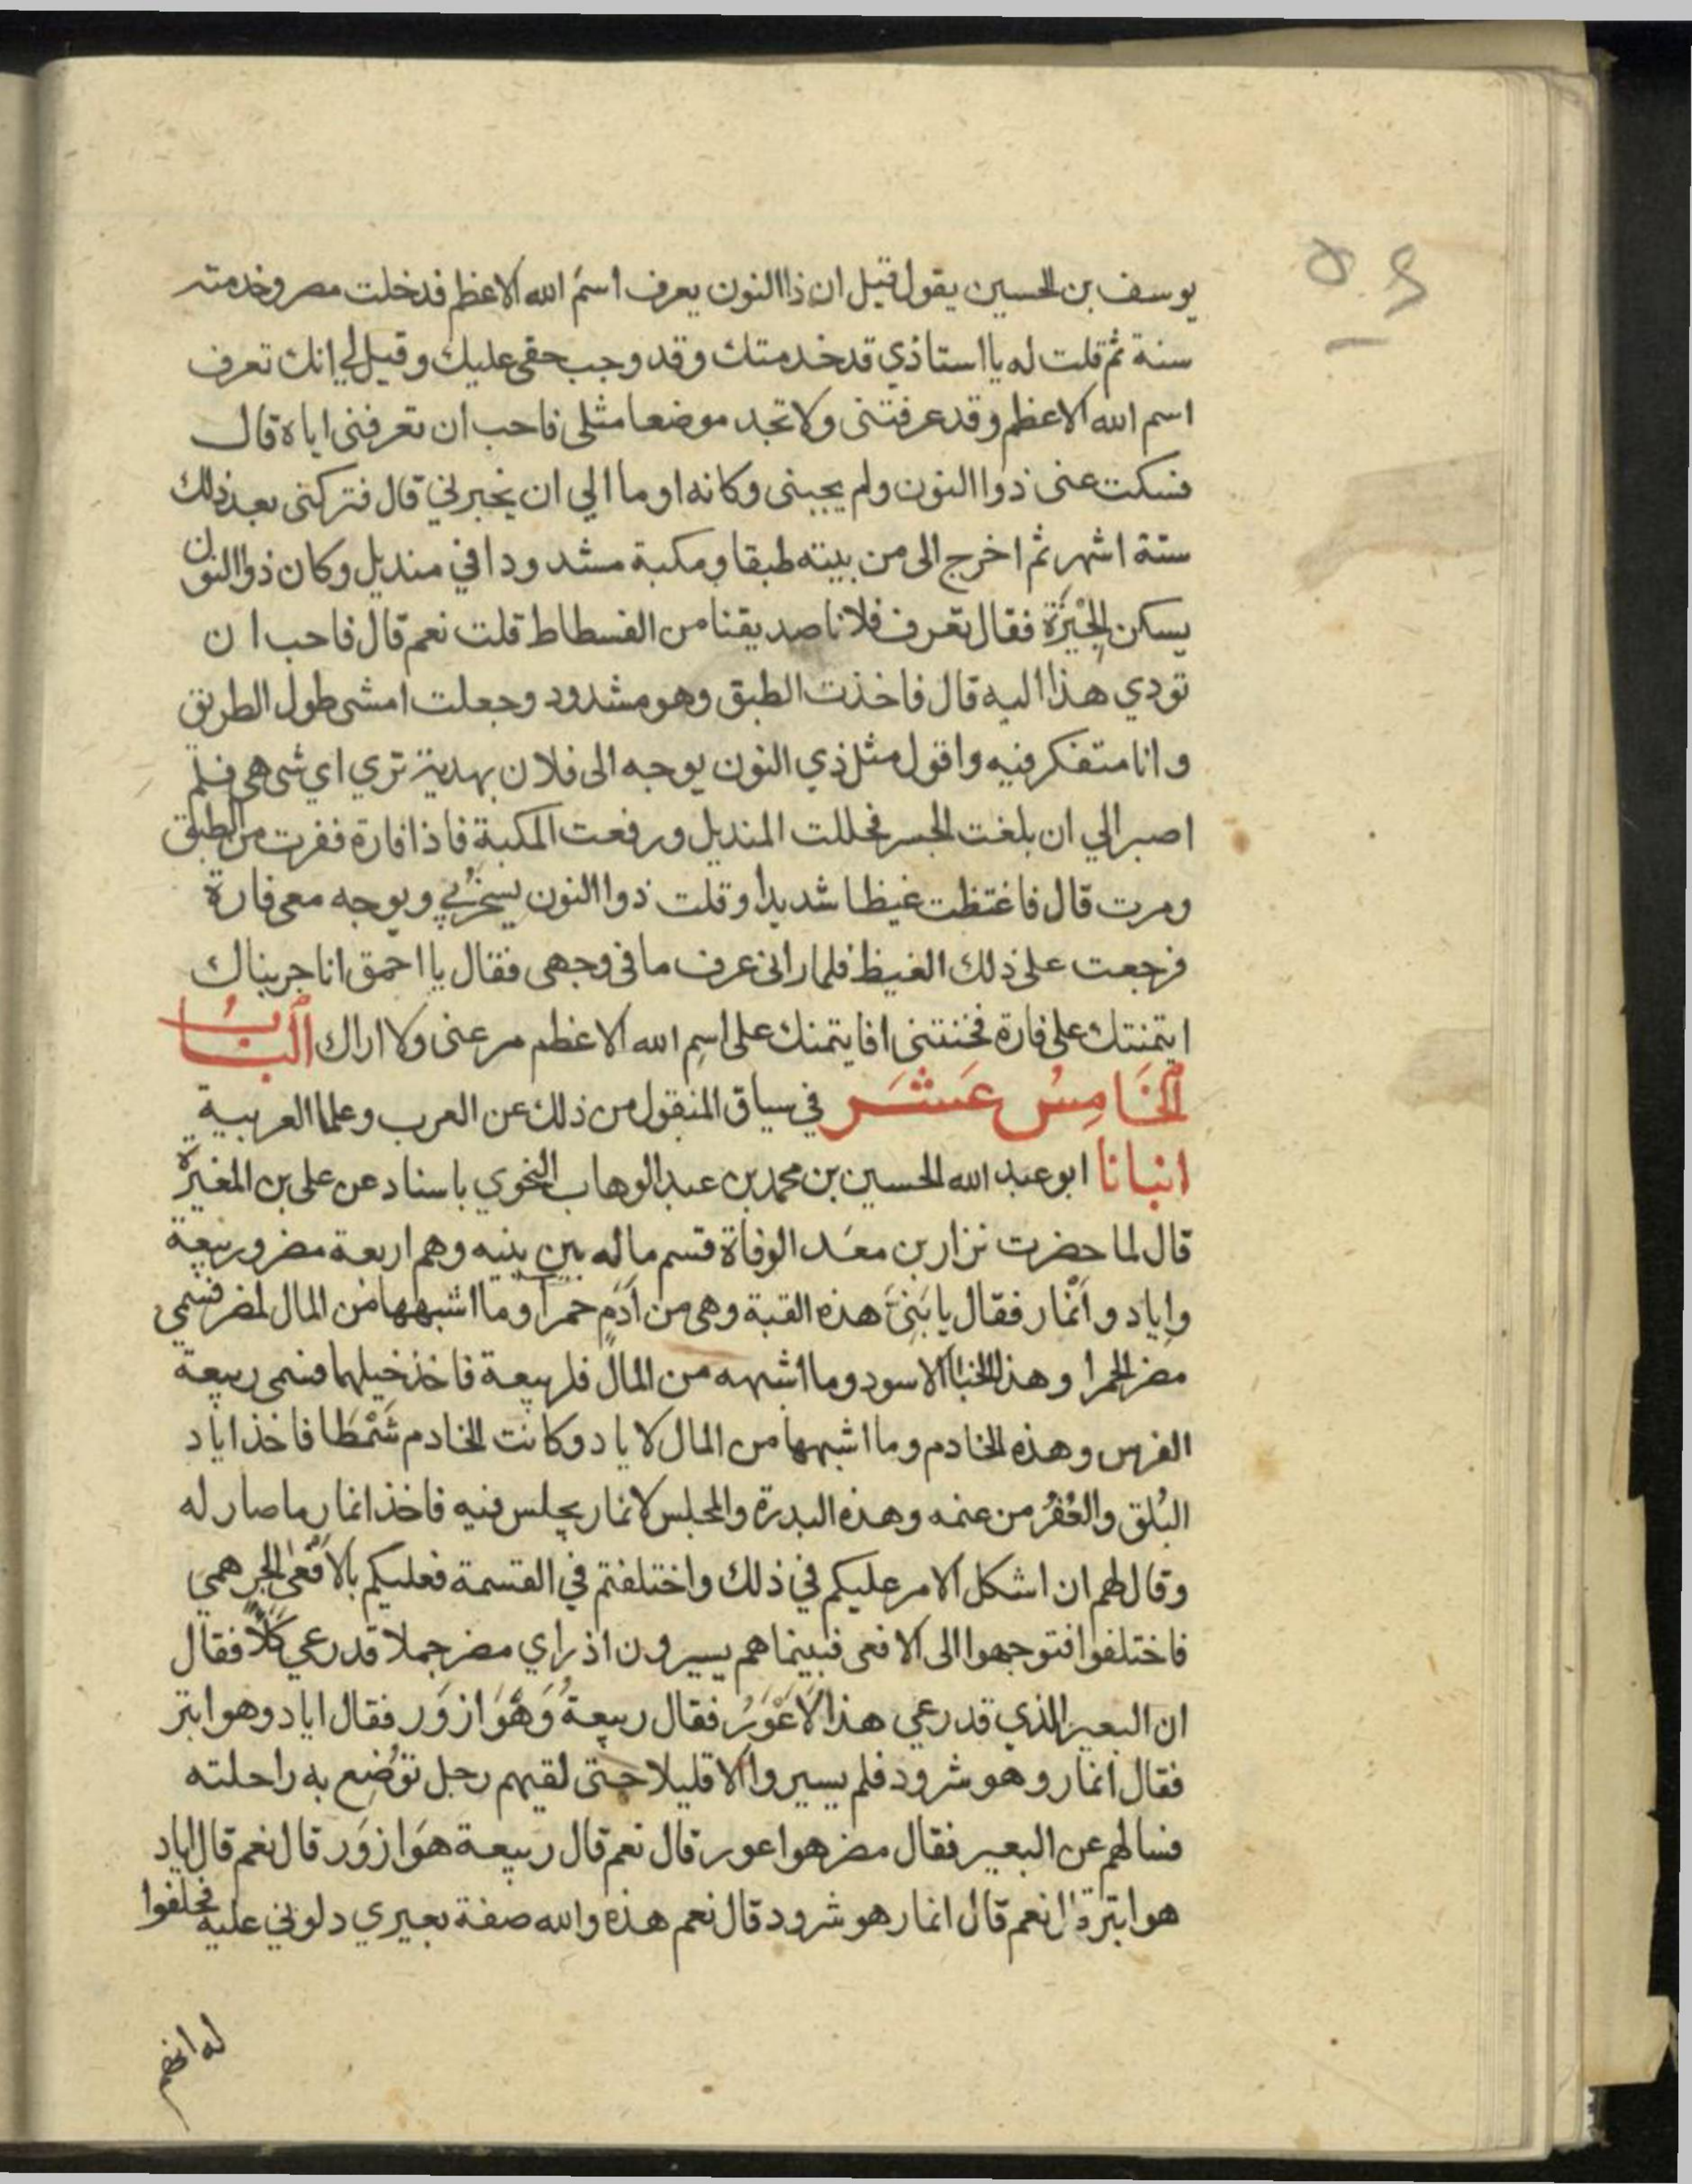 يوسف بن الحسين يقول قيل ان ذا النون يعرف اسمَ الله الاعظم فدخلت مصر وخدمته
سنة ثم قلت له يا استاذي قد خدمتك وقد وجب حقي عليك وقيل لي انك تعرف
اسم الله الاعظم وقد عرفتني ولا تجد موضعا مثلى فاحب ان تعرفنى اياه قال
فسكت عنى ذوا النون ولم يجبنى وكانه اوما الي ان يخبرني قال فتركنى بعد ذلك
ستة اشهر ثم اخرج الى من بيته طبقا ومكبة مشدودا في منديل وكان ذوا النون
يسكن الجيْزَة فقال تعرف فلانا صديقنا من الفسطاط قلت نعم قال فاحب ان
تودي هذا اليه قال فاخذت الطبق وهو مشدود وجعلت امشى طول الطريق
وانا متفكر فيه واقول مثل ذي النون يوجه الى فلان بهدية تري اي شى هى فلم
اصبر الي ان بلغت الجسر فحللت المنديل ورفعت المكبة فاذا فارة فقفرت من الطبق
ومرت قال فاغتظت غيظا شديدا وقلت ذوا النون يسخر بي ويوجه معى فارة
فرجعت على ذلك الغيظ فلما رانى عرف ما فى وجهى فقال يا احمق انا جربناك
ايتمنتك على فارة فخنتنى افايتمنك على اسم الله الاعظم مر عنى ولا اراك البَابُ
الخَامِسُ عَشَر في سياق المنقول من ذلك عن العرب وعلما العربية
انبانا ابو عبد الله الحسين بن محمد بن عبد الوهاب النحوي باسناد عن على بن المغيرة
قال لما حضرت نزار بن معَد الوفاة قسم ماله بين بنيه وهم اربعة مضر وربيعة
واياد وأنمار فقال يا بَنىَّ هذه القبة وهى من أدَم حمرا وما اشبهها من المال لمضر فسمى
مضر الحمرا وهذا الخبا الاسود وما اشبهه من المال فلربيعة فاخذ خيلهما فسمى ربيعة
الفرس وهذه الخادم وما اشبهها من المال لاياد وكانت الخادم شَمْطَا فاخذ اياد
البُلق والعُفُر من غنمه وهذه البدرة والمجلس لانمار يجلس فيه فاخذ انمار ما صار له
وقال لهم ان اشكل الامر عليكم في ذلك واختلفتم في القسمة فعليكم بالافعى الجرهمي
فاختلفوا فتوجهوا الى الافعى فبينما هم يسيرون اذ راي مضر جملا قد رعي كلأً فقال
ان البعير الذي قد رعي هذا لَاعْوَرُ فقال ربيعةُ وَهُوَ ازوَر فقال اياد وهو ابتر
فقال انمار وهو شرود فلم يسيروا الا قليلا حتى لقيهم رجل توُضع به راحلته
فسالهم عن البعير فقال مضر هو اعور قال نعم قال ربيعة هوَ ازوَر قال نعم قال اياد
هو ابتر قال نعم قال انمار هو شرود قال نعم هذه والله صفة بعيري دلوني عليه فحلفوا
له انهم